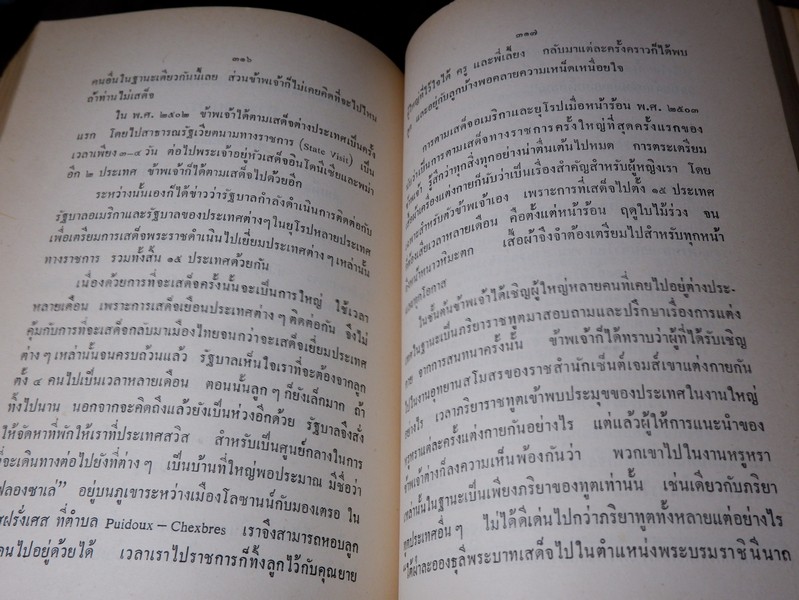 ๓๑๖
คนอื่นในฐานะเดียวกันนี้เลย ส่วนข้าพเจ้าก็ไม่เคยคิดที่จะไปไหน
ถ้าท่านไม่เสด็จ
ใน พ.ศ. ๒๕๐๒ ข้าพเจ้าได้ตามเสด็จต่างประเทศเป็นครั้ง
แรก โดยไปสาธารณรัฐเวียดนามทางราชการ (State Visit) เป็น
เวลาเพียง ๓-๔ วัน ต่อไปพระเจ้าอยู่หัวเสด็จอินโดนีเซียและพม่า
อีก ๒ ประเทศ ข้าพเจ้าก็ได้ตามเสด็จไปด้วยอีก
ระหว่างนั้นเองก็ได้ข่าวว่ารัฐบาลกำลังดำเนินการติดต่อกับ
รัฐบาลอเมริกาและรัฐบาลของประเทศต่างๆในยุโรปหลายประเทศ
เพื่อเตรียมการเสด็จพระราชดำเนินไปเยี่ยมประเทศต่างๆเหล่านั้น
ทางราชการ รวมทั้งสิ้น ๑๕ ประเทศด้วยกัน
เนื่องด้วยการที่จะเสด็จครั้งนั้นจะเป็นการใหญ่ ใช้เวลา
หลายเดือน เพราะการเสด็จเยือนประเทศต่างๆติดต่อกัน จึงไม่
คุ้มกับการที่จะเสด็จกลับมาเมืองไทยจนกว่าจะเสด็จเยี่ยมประเทศ
ต่างๆเหล่านั้นจนครบถ้วนแล้ว รัฐบาลเห็นใจเราที่จะต้องจากลูก
ตั้ง ๔ คนไปเป็นเวลาหลายเดือน ตอนนั้นลูกๆก็ยังเล็กมาก ถ้า
ทิ้งไปนาน นอกจากจะคิดถึงแล้วยังเป็นห่วงอีกด้วย รัฐบาลจึงสั่ง
ให้จัดหาที่พักให้เราที่ประเทศสวิส สำหรับเป็นศูนย์กลางในการ
ที่จะเดินทางต่อไปยังที่ต่างๆ เป็นบ้านที่ใหญ่พอประมาณ มีชื่อว่า
ฟลองซาเล่" อยู่บนภูเขาระหว่างเมืองโลซานน์กับมองเตรอ ใน
สฝรั่งเศส ที่ตำบล Puidoux-Chexbres เราจึงสามารถหอบลูก
คนไปอยู่ด้วยได้ เวลาเราไปราชการก็ทิ้งลูกไว้กับคุณยาย
๓๑๗
ใหญ่ที่ไว้ใจได้ ครู และพี่เลี้ยง กลับมาแต่ละครั้งคราวก็ได้พบ
และอยู่กับลูกบ้างพอคลายความเหน็ดเหนื่อยใจ
การตามเสด็จอเมริกาและยุโรปเมื่อหน้าร้อน พ.ศ. ๒๕๐๓
ว่าเป็นการตามเสด็จทางราชการครั้งใหญ่ที่สุดครั้งแรกของ
รู้สึกว่าทุกสิ่งทุกอย่างน่าตื่นเต้นไปหมด การตระเตรียม
เครื่องแต่งกายก็นับว่าเป็นเรื่องสำคัญสำหรับผู้หญิงเรา โดย
สำหรับตัวข้าพเจ้าเอง เพราะการที่เสด็จไปตั้ง ๑๕ ประเทศ
เวลาหลายเดือน คือตั้งแต่หน้าร้อน ฤดูใบไม้ร่วง จน
หน้าหนาวหิมะตก เสื้อผ้าจึงจำต้องเตรียมไปสำหรับทุกหน้า
ทุกโอกาส
ในขั้นต้นข้าพเจ้าได้เชิญผู้ใหญ่หลายคนที่เคยไปอยู่ต่างประ-
ในฐานะเป็นภริยาราชทูตมาสอบถามและปรึกษาเรื่องการแต่ง
จากการสนทนาครั้งนั้น ข้าพเจ้าก็ได้ทราบว่าผู้ที่ได้รับเชิญ
ไปในงานอุทยานสโมสรของราชสำนักเซ็นต์เจมส์เขาแต่งกายกัน
อย่างไร เวลาภริยาราชทูตเข้าพบประมุขของประเทศในงานใหญ่
หรูหราแต่ละครั้งแต่งกายกันอย่างไร แต่แล้วผู้ให้การแนะนำของ
ข้าพเจ้าต่างก็ลงความเห็นพ้องกันว่า พวกเขาไปในงานหรูหรา
เหล่านั้นในฐานะเป็นเพียงภริยาของทูตเท่านั้น เช่นเดียวกับภริยา
ทูตประเทศอื่นๆ ไม่ได้ดีเด่นไปกว่าภริยาทูตทั้งหลายแต่อย่างไร
"ใต้ฝ่าละอองธุลีพระบาทเสด็จไปในตำแหน่งพระบรมราชินีนาถ